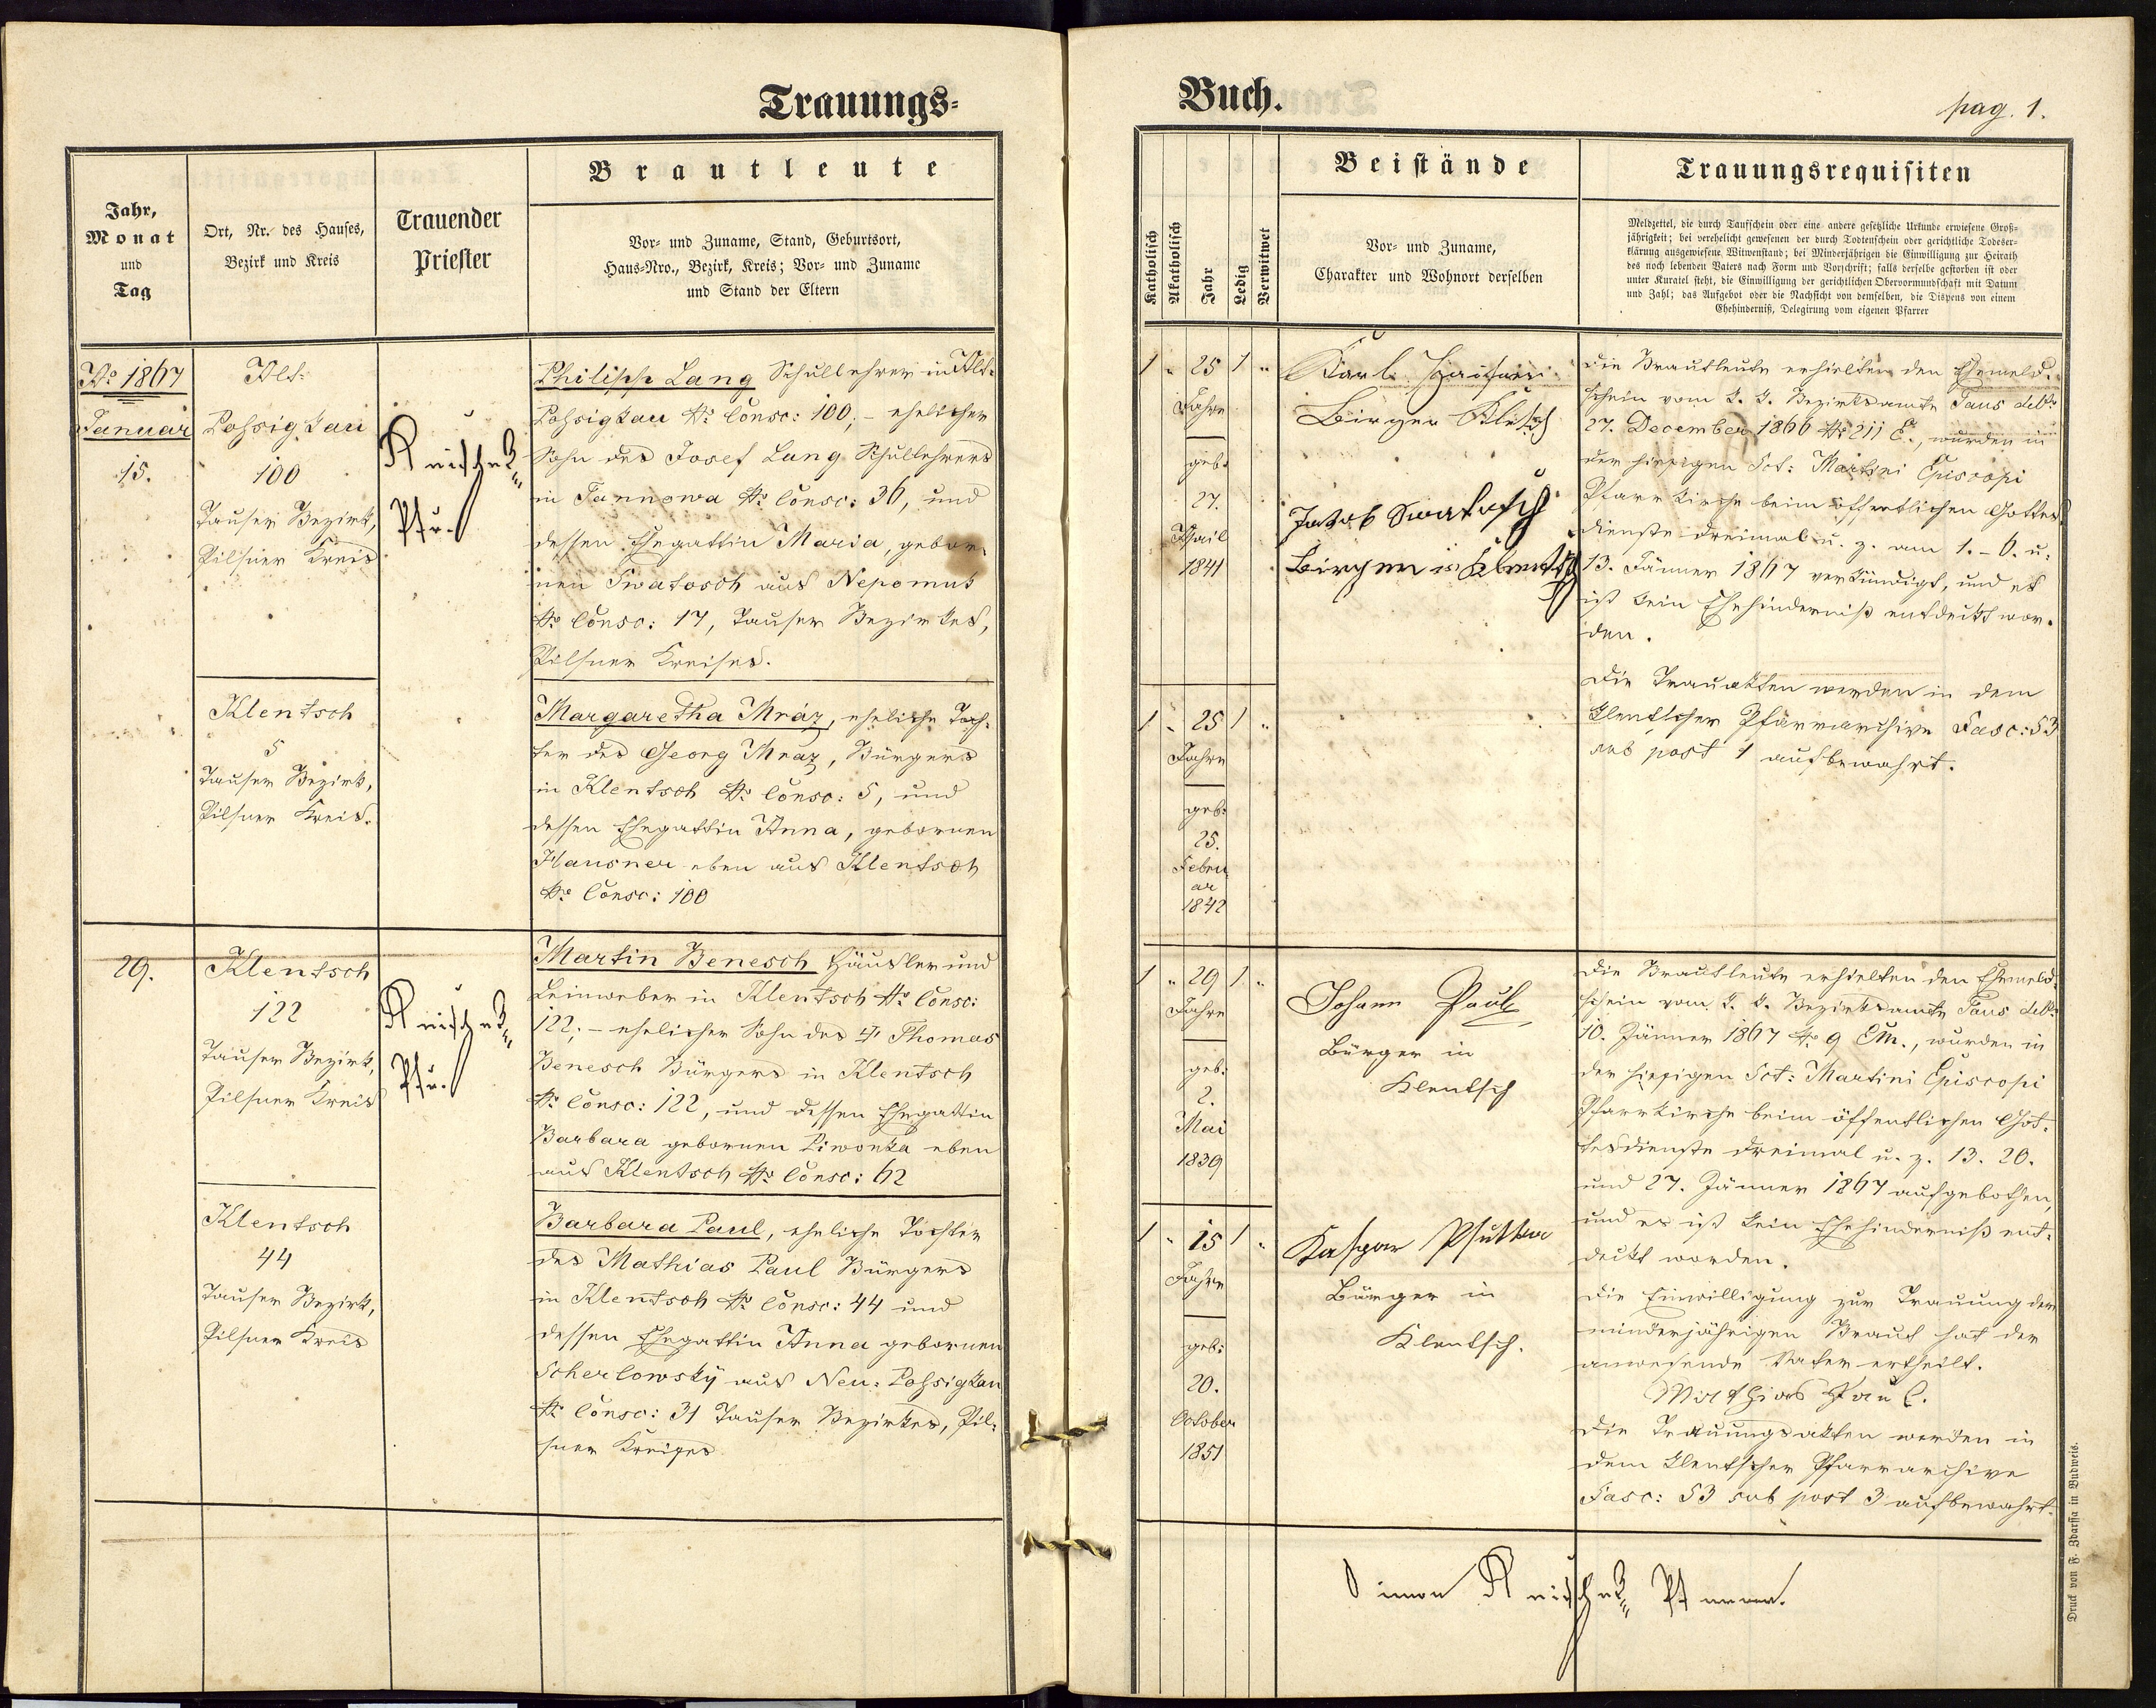 Trauungs-
Buch.
pag. 1.
Jahr,
Monat
und
Tag
Ort, Nr. des Hauses,
Bezirk und Kreis
Trauender
Priester
Brautleute
Vor- und Zuname, Stand, Geburtsort,
Haus-Nro., Bezirk, Kreis; Vor- und Zuname
und Stand der Eltern
Katholisch
Akatholisch
Jahr
Ledig
Verwitwet
Beistände
Vor- und Zuname,
Charakter und Wohnort derselben
Trauungsrequisiten
Meldzettel, die durch Taufschein oder eine andere gesetzliche Urkunde erwiesene Groß-
jährigkeit; bei verehelicht gewesenen der durch Todtenschein oder gerichtliche Todeser-
klärung ausgewiesene Witwenstand; bei Minderjährigen die Einwilligung zur Heirath
des noch lebenden Vaters nach Form und Vorschrift; falls derselbe gestorben ist oder
unter Kuratel steht, die Einwilligung der gerichtlichen Obervormundschaft mit Datum
und Zahl; das Aufgebot oder die Nachsicht von demselben, die Dispens von einem
Ehehinderniß, Delegirung vom eigenen Pfarrer
Ao 1867
Januar
15.
Alt-
Poßigkau
100
Tauser Bezirk,
Pilsner Kreis
Pfr.
Philipp Lang Schullehrer in Alt-
Poßigkau No Consc: 100; – ehelicher
Sohn des Josef Lang Schullehrers
in Tannowa No Consc: 36, und
dessen Ehegattin Maria, gebor-
nen Swatosch aus Nepomuk
No Consc: 17, Tauser Bezirkes,
Pilsner Kreises.
Klentsch
5
Tauser Bezirk,
Pilsner Kreis.
Margaretha Mráz, eheliche Toch-
ter des Georg Mráz, Bürgers
in Klentsch No Consc: 5, und
dessen Ehegattin Anna, gebornen
Hausner eben aus Klentsch
No Consc: 100
1 " 25 1 "
Jahre
geb:
27.
April
1841
Karl
Bürger
Jakob Swatosch
Bürger in Klentsch
Die Brautleute erhielten den Ehemeld-
schein vom k. k. Bezirksamte Taus ddto
27. December 1866 No 211 E., wurden in
der hiesigen Sct: Martini Episcopi
Pfarrkirche beim öffentlichen Gottes-
dienste dreimal u. z. am 1. – 6. u.
13. Jänner 1867 verkündigt, und es
ist kein Ehehinderniß entdeckt wor-
den.
Die Trauakten werden in dem
Klentscher Pfarrarchive Fasc: 53
sub post 1 aufbewahrt.
1 " 25 1 "
Jahre
geb:
25.
Febru
ar
1842
29.
Klentsch
122
Tauser Bezirk,
Pilsner Kreis
Pfr.
Martin Benesch Häusler und
Leinweber in Klentsch No Consc:
122; – ehelicher Sohn des † Thomas
Benesch Bürgers in Klentsch
No Consc: 122, und dessen Ehegattin
Barbara gebornen Piwonka eben
aus Klentsch No Consc: 62
Klentsch
44
Tauser Bezirk,
Pilsner Kreis
Barbara Paul, eheliche Tochter
des Mathias Paul Bürgers
in Klentsch No Consc: 44 und
dessen Ehegattin Anna gebornen
Scherlowsky aus Neu-Poßigkau
No Consc: 31 Tauser Bezirkes, Pil-
sner Kreises
1 " 29 1 "
Jahre
geb:
2.
Mai
1839
Johann Paul
Bürger in
Klentsch
Die Brautleute erhielten den Ehemeld-
schein vom k. k. Bezirksamte Taus ddto
10. Jänner 1867 No 9 EM., wurden in
der hiesigen Sct: Martini Episcopi
Pfarrkirche beim öffentlichen Got-
tesdienste dreimal u. z. 13. 20.
und 27. Jänner 1867 aufgebothen,
und es ist kein Ehehinderniß ent-
deckt worden.
Die Einwilligung zur Trauung der
minderjährigen Braut hat der
anwesende Vater ertheilt.
Mathias Paul.
Die Trauungsakten werden in
dem Klentscher Pfarrarchive
Fasc: 53 sub post 3 aufbewahrt.
1 " 15 1 "
Jahre
geb:
20.
October
1851
Kaspar
Bürger in
Klentsch.
Simon Pfarrer.
Druck von F. Zdarssa in Budweis.